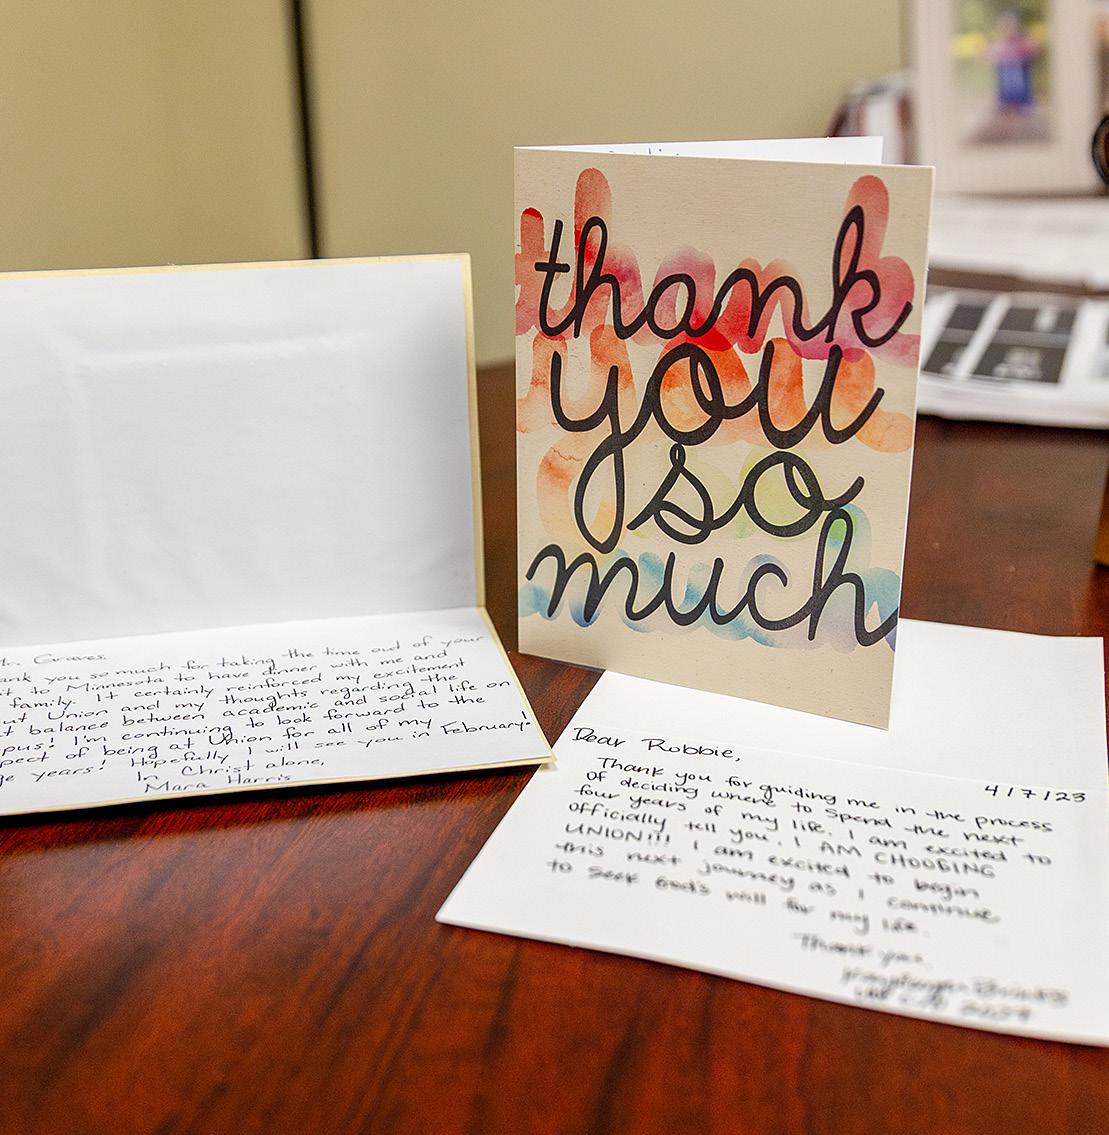 thank
you
so
much
Mr. Graves,
ank you so much for taking the time out of your
it to Minnesota to have dinner with me and
family. It certainly reinforced my excitement
out Union and my thoughts regarding the
t balance between academic and social life on
pus! I'm continuing to look forward to the
spect of being at Union for all of my
ge years! Hopefully I will see you in February!
In Christ alone,
Mara Harris
4/7/23
Dear Robbie,
Thank you for guiding me in the process
of deciding where to spend the next
four years of my life. I am excited to
officially tell you, I AM CHOOSING
UNION!!! I am excited to begin
this next journey as I continue
to seek God's will for my life.
Thank you,